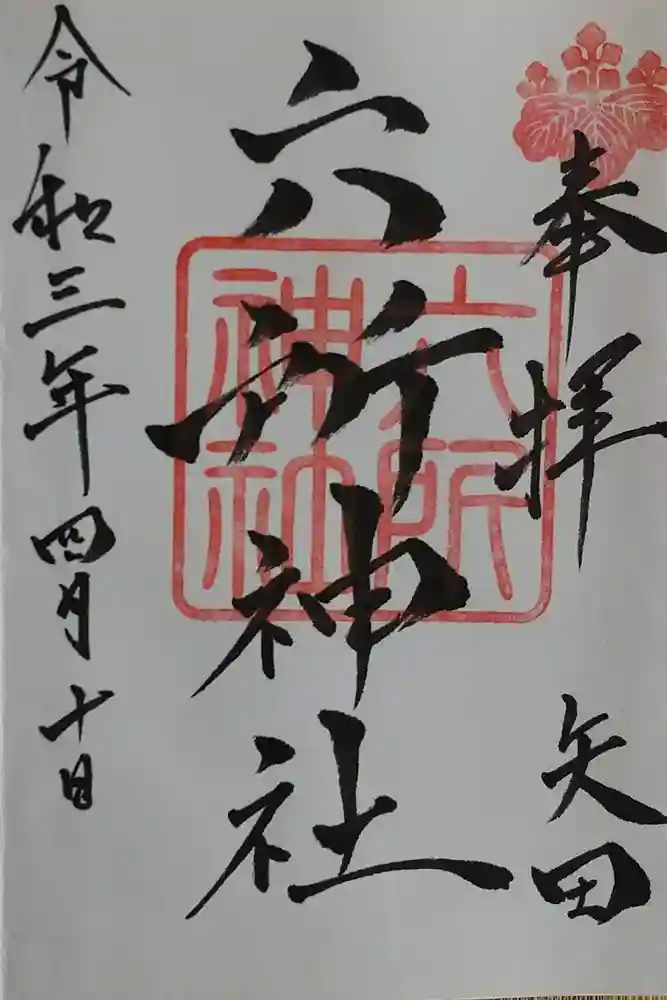 奉拝 矢田
六所神社
六所
神社
令和三年四月十日